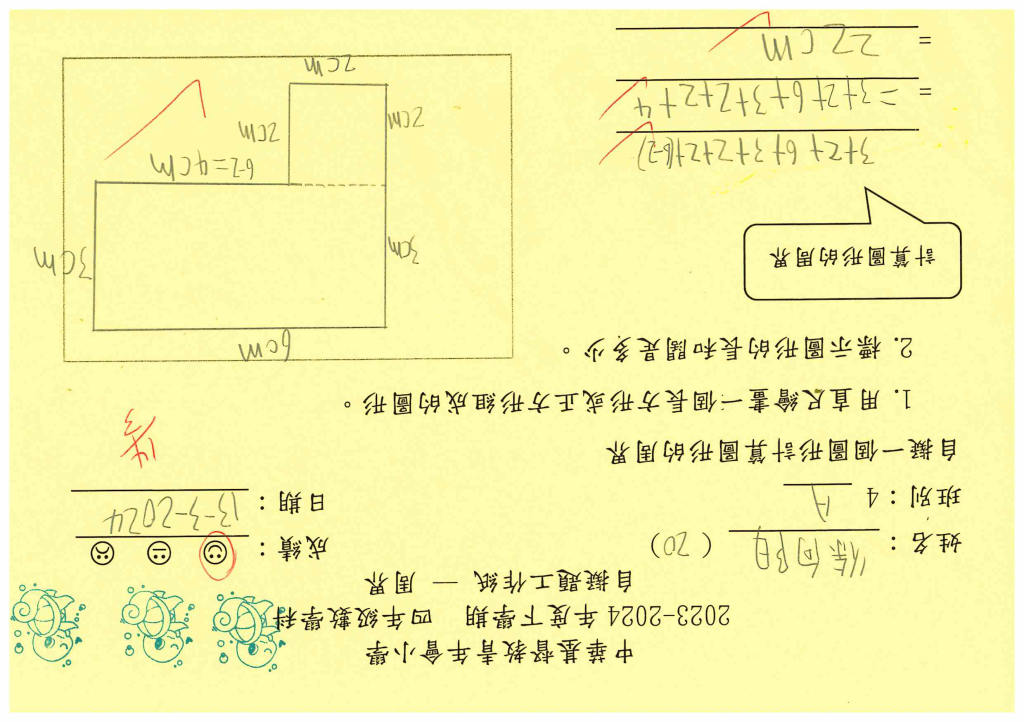 中華基督教青年會小學
2023-2024 年度下學期 四年級數學科
自擬題工作紙 — 周界
姓名： (20)
成績：
班別：4 A
日期：13-3-2024
自擬一個圖形計算圖形的周界
1. 用直尺繪畫一個長方形或正方形組成的圖形。
2. 標示圖形的長和闊是多少。
計算圖形的周界
3+2+6+3+2+2+(6-2)
=3+2+6+3+2+2+4
= 22cm
6cm
3cm
3cm
6-2=4cm
2cm
2cm
2cm